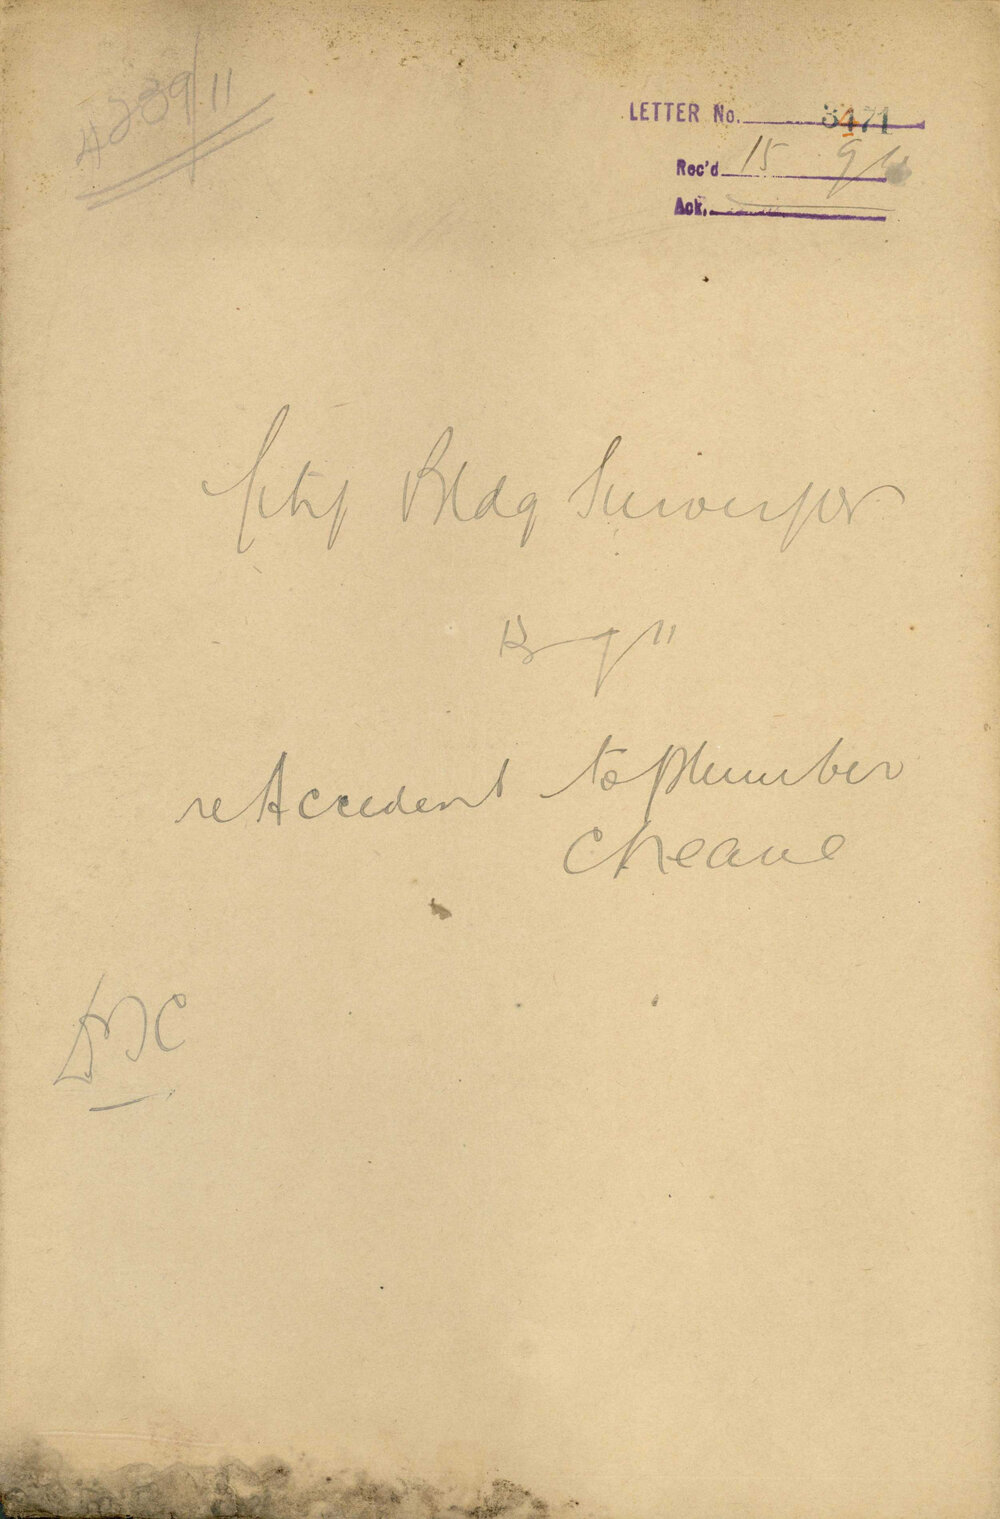 4239/11
LETTER No. 3471
Rec'd 15 9 11
Ack.
City Bldg Surveyor
9 11
re Accident to Plumber
Cheane